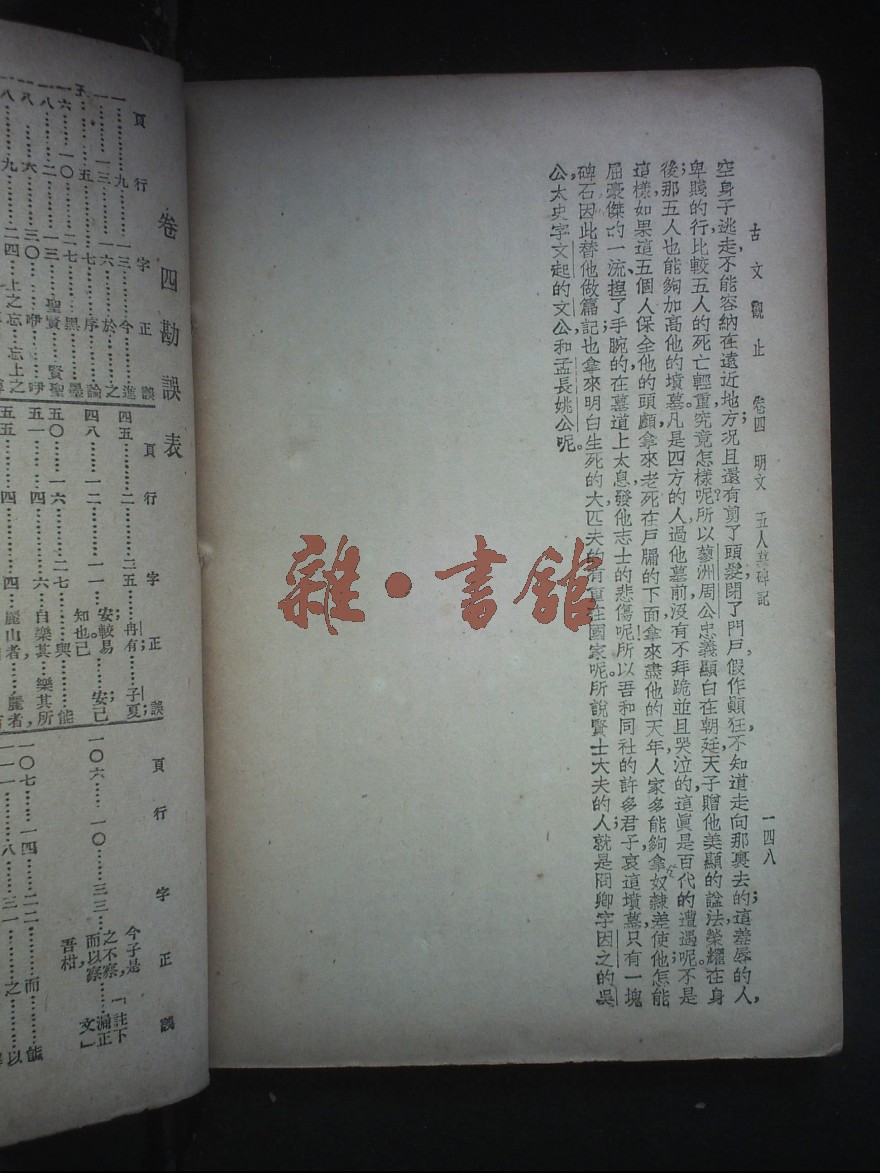 古文觀止　卷四　明文　五人墓碑記　一四八
空身子逃走，不能容納在遠近地方；況且還有剪了頭髮，閉了門戶，假作顛狂，不知道走向那裏去的；這羞辱的人，
卑賤的行，比較五人的死亡，輕重究竟怎樣呢？所以蓼洲周公，忠義顯白在朝廷，天子贈他美顯的謚法，榮耀在身
後；那五人也能夠加高他的墳墓。凡是四方的人，過他墓前，沒有不拜跪並且哭泣的，這眞是百代的遭遇呢。不是
這樣，如果這五個人保全他的頭顱，拿來老死在戶牖的下面，拿來盡他的天年，人家多能夠拿奴隸差使他，怎能
屈豪傑的一流、揑了手腕的在墓道上太息，發他志士的悲傷呢？所以吾和同社的許多君子，哀這墳墓只有一塊
碑石，因此替他做篇記；也拿來明白生死的大，匹夫的有重在國家呢。所說賢士大夫的人，就是冏卿字因之的吳
公，太史字文起的文公和孟長姚公呢。
卷四勘誤表
頁　行　字　正　誤
一……九……一三……今……進
一……一三……一六……於……之
……五……七……序……論
六……一〇……二七……黑……墨
一八……二……一三……聖賢……賢聖
八……六……三〇……咿……吚
八……九……二四……上之忘……忘上之
頁　行　字　正　誤
四五……二……二五……冉有；……子夏；
四八……一二……一一……安。較易知也己……安；己
五〇……一六……二七……與……能
五一……四……六……自樂其……樂其所
五五……四……四……麗山者，……麗者，
頁　行　字　正　誤
一〇六……一〇……三三……而以察
今子是之不察，
吾柑，
「註下漏正文」
一〇七……一四……二二……而……能
一一一……八……三一……之……以
雜·書館